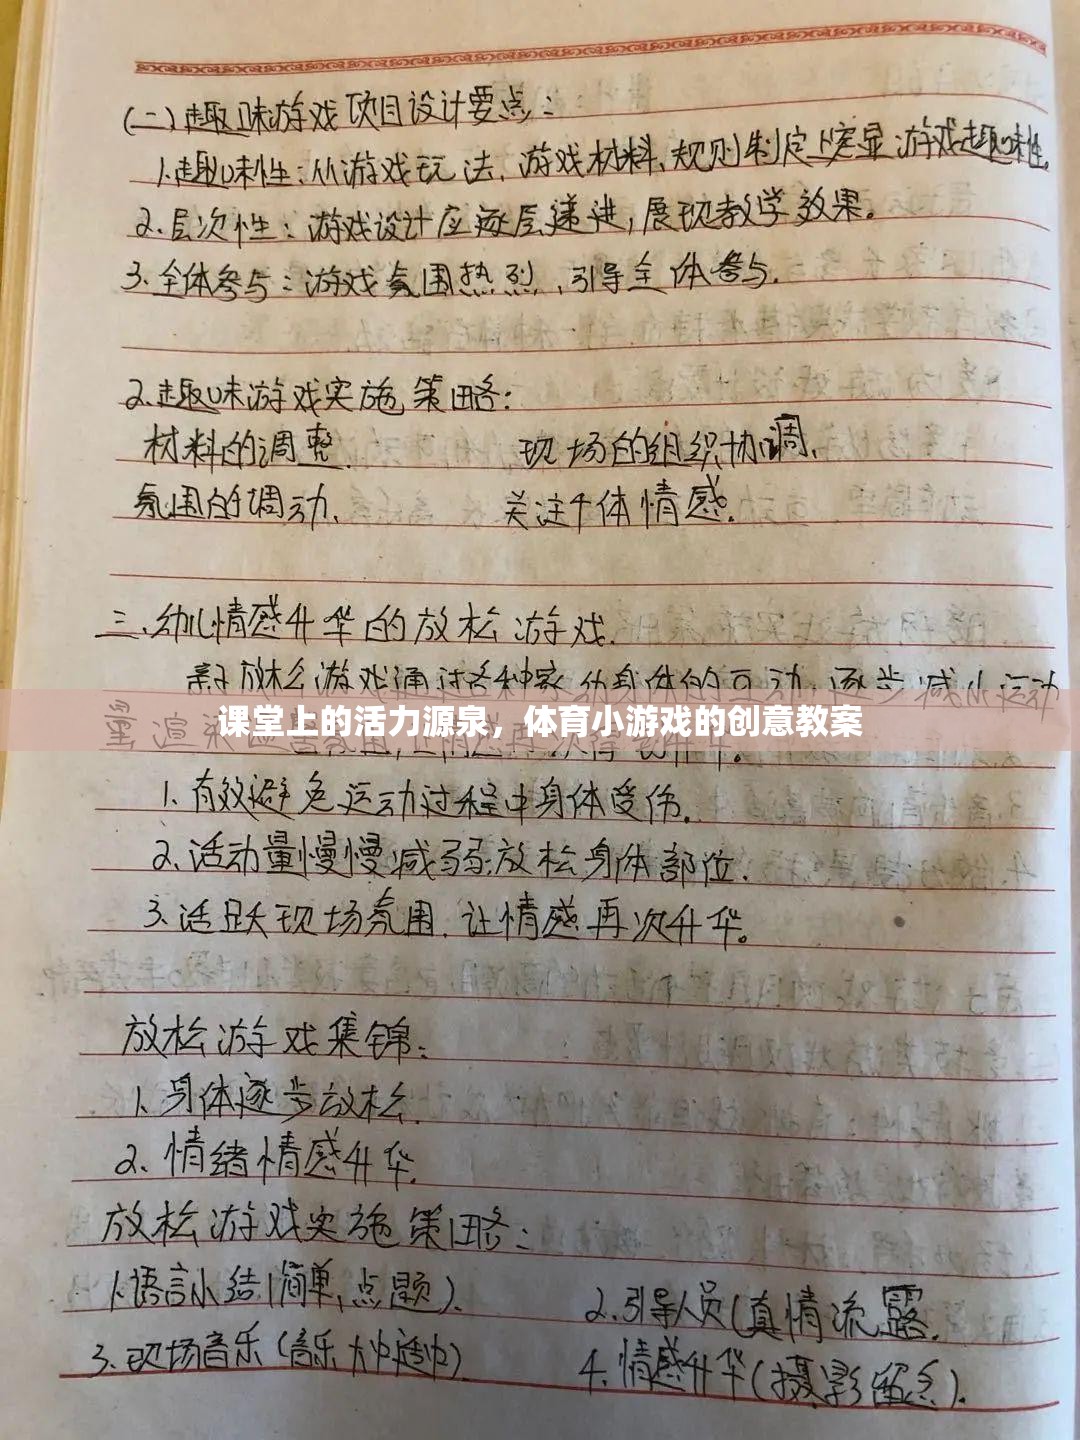 (二)趣味游戏项目设计要点:
1.趣味性:从游戏玩法、游戏材料、规则制定上突显游戏趣味性。
2.层次性:游戏设计应逐层递进,展现教学效果。
3.全体参与:游戏氛围热烈、引导全体参与.
2.趣味游戏实施策略:
材料的调整. 现场的组织协调、
氛围的调动、 关注个体情感.
三.幼儿情感升华的放松游戏.
亲子放松游戏通过各种家的身体的互动,逐步减小运动
课堂上的活力源泉,体育小游戏的创意教案
量渲染
1、有效避免运动过程中身体受伤.
2.活动量慢慢减弱.放松身体部位.
3.活跃现场氛围.让情感再次升华。
放松游戏集锦:
1、身体逐步放松.
2、情绪情感升华.
放松游戏实施策略:
1.语言小结(简单,点题). 2.引导人员(真情流露.
3.现场音乐(音乐 4.情感升华(摄影留念).